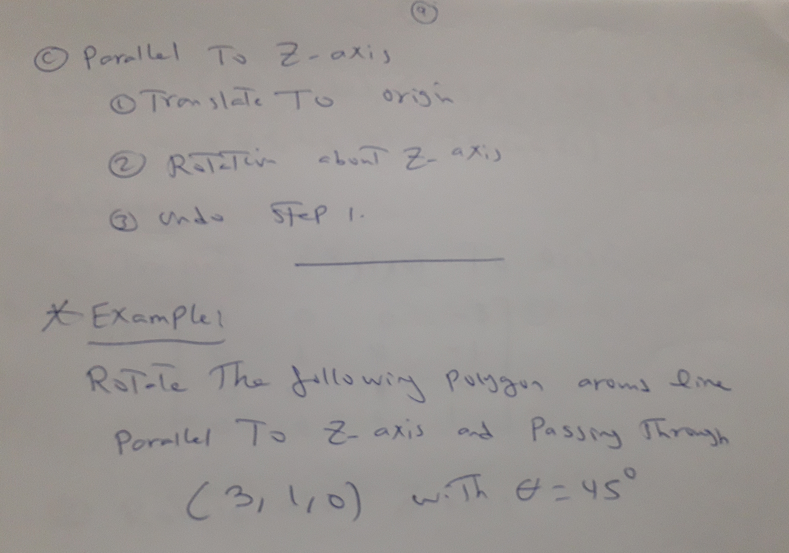 9
Ⓒ Parallel To Z-axis
① Translate To origin
② Rotation about Z-axis
③ undo Step 1.
* Example:
Rotate The following Polygon around line
Parallel To Z-axis and Passing Through
(3, 1, 0) with θ = 45°